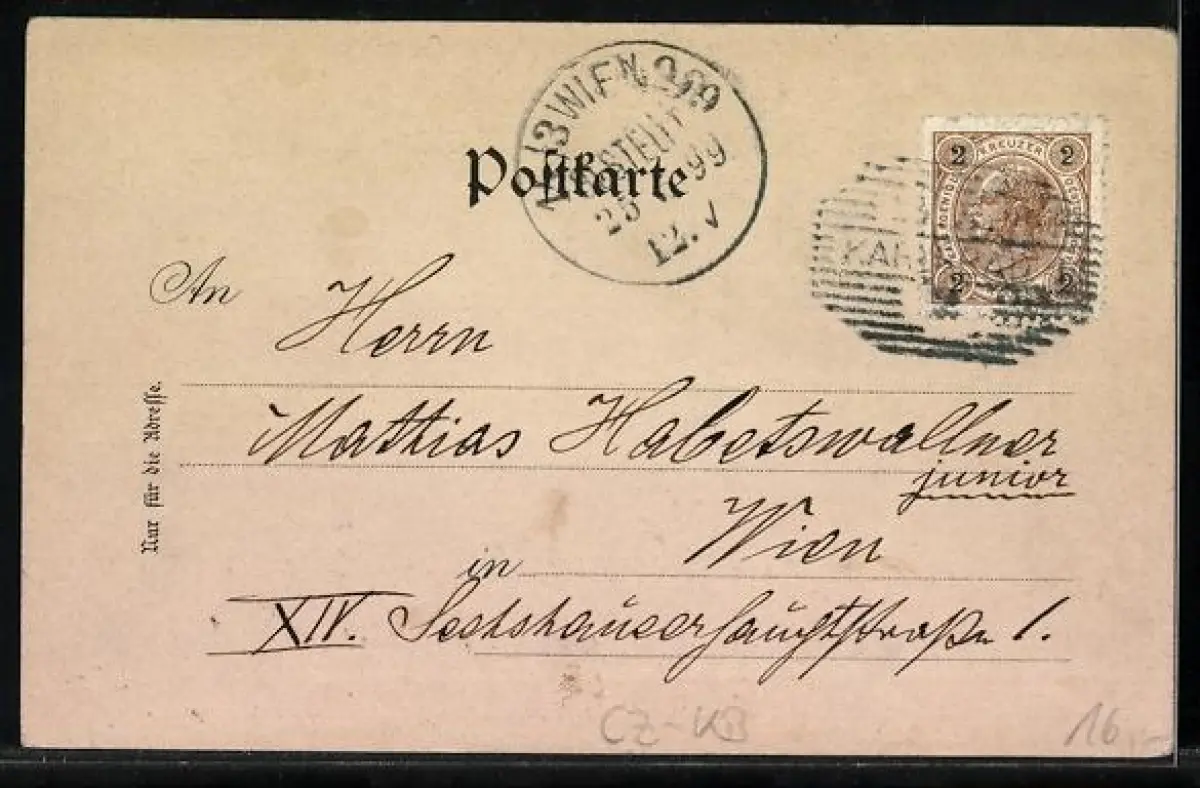 WIEN
BESTELLT
25 99
12. V
Postkarte
2 KREUZER 2
2 2
KAR
An Herrn
Nur für die Adresse.
Mathias Habetswallner
junior
Wien
in
XIV. Sechshauserhauptstraße 1.
CZ-KB
16,-